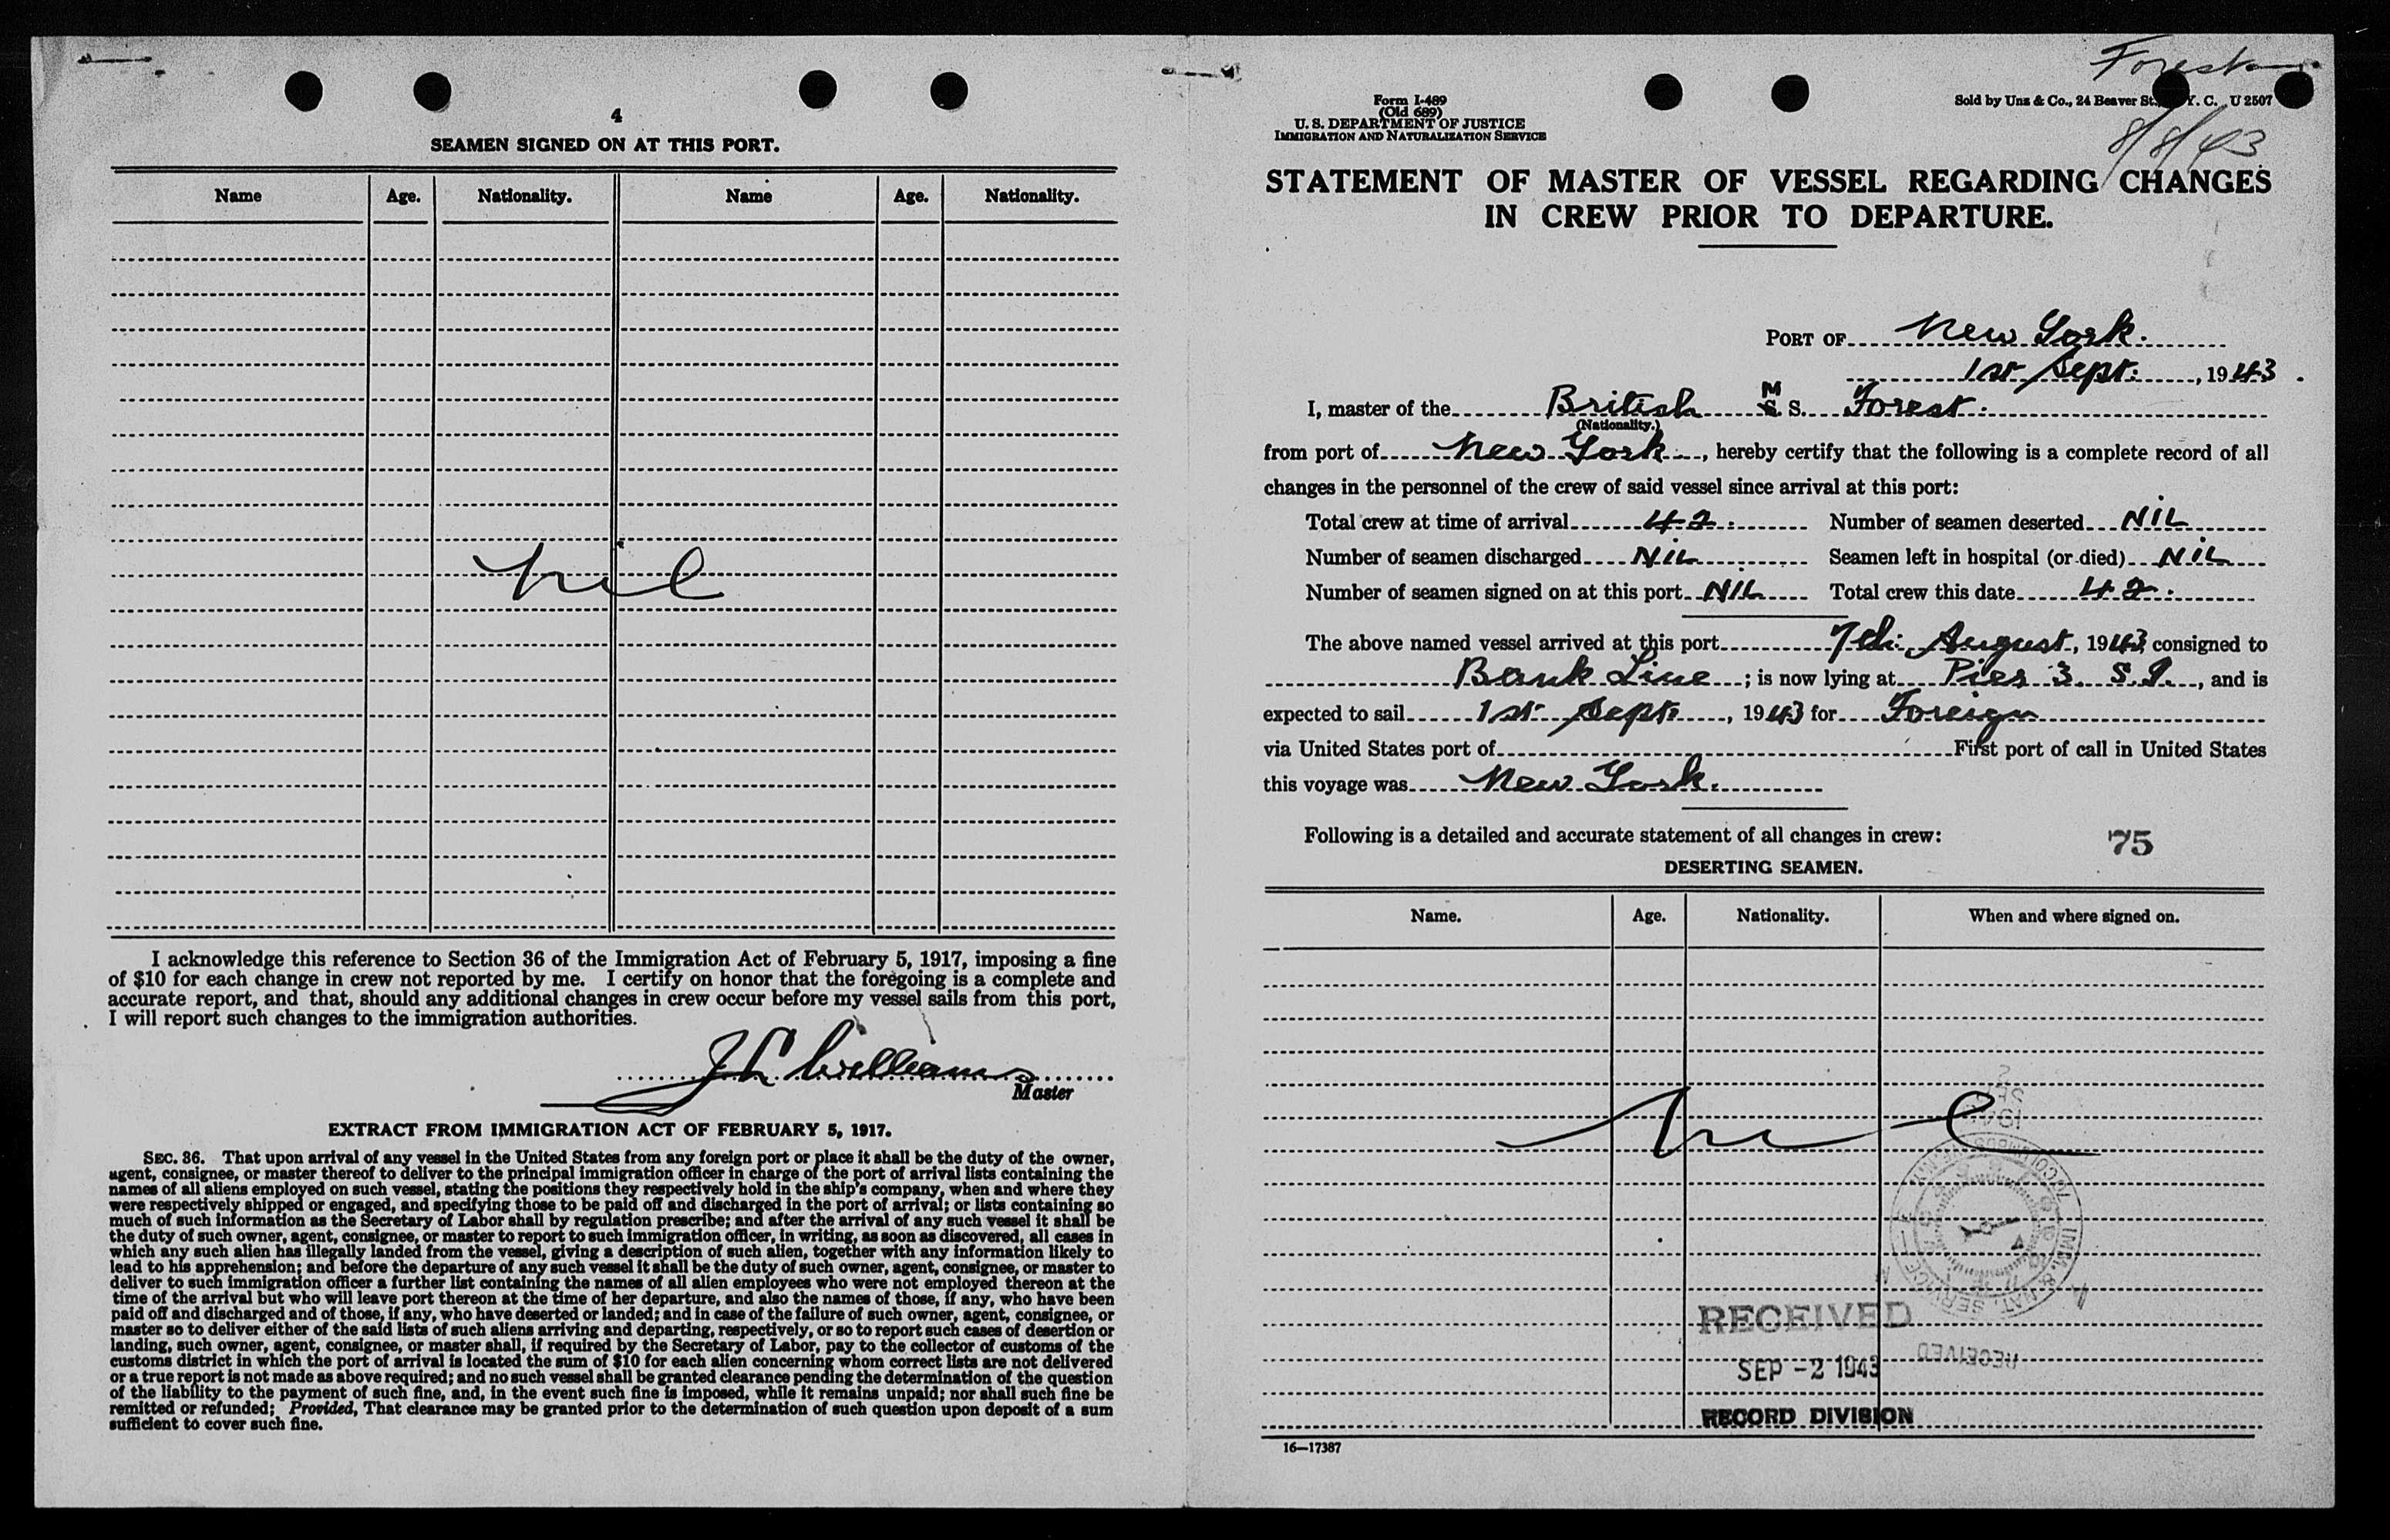 4
SEAMEN SIGNED ON AT THIS PORT.
Name Age. Nationality. Name Age. Nationality.
nil
I acknowledge this reference to Section 36 of the Immigration Act of February 5, 1917, imposing a fine
of $10 for each change in crew not reported by me. I certify on honor that the foregoing is a complete and
accurate report, and that, should any additional changes in crew occur before my vessel sails from this port,
I will report such changes to the immigration authorities.
J L Williams
Master
EXTRACT FROM IMMIGRATION ACT OF FEBRUARY 5, 1917.
SEC. 36. That upon arrival of any vessel in the United States from any foreign port or place it shall be the duty of the owner,
agent, consignee, or master thereof to deliver to the principal immigration officer in charge of the port of arrival lists containing the
names of all aliens employed on such vessel, stating the positions they respectively hold in the ship's company, when and where they
were respectively shipped or engaged, and specifying those to be paid off and discharged in the port of arrival; or lists containing so
much of such information as the Secretary of Labor shall by regulation prescribe; and after the arrival of any such vessel it shall be
the duty of such owner, agent, consignee, or master to report to such immigration officer, in writing, as soon as discovered, all cases in
which any such alien has illegally landed from the vessel, giving a description of such alien, together with any information likely to
lead to his apprehension; and before the departure of any such vessel it shall be the duty of such owner, agent, consignee, or master to
deliver to such immigration officer a further list containing the names of all alien employees who were not employed thereon at the
time of the arrival but who will leave port thereon at the time of her departure, and also the names of those, if any, who have been
paid off and discharged and of those, if any, who have deserted or landed; and in case of the failure of such owner, agent, consignee, or
master so to deliver either of the said lists of such aliens arriving and departing, respectively, or so to report such cases of desertion or
landing, such owner, agent, consignee, or master shall, if required by the Secretary of Labor, pay to the collector of customs of the
customs district in which the port of arrival is located the sum of $10 for each alien concerning whom correct lists are not delivered
or a true report is not made as above required; and no such vessel shall be granted clearance pending the determination of the question
of the liability to the payment of such fine, and, in the event such fine is imposed, while it remains unpaid; nor shall such fine be
remitted or refunded; Provided, That clearance may be granted prior to the determination of such question upon deposit of a sum
sufficient to cover such fine.
Forest
8/8/43
Form I-489
(Old 689)
U. S. DEPARTMENT OF JUSTICE
IMMIGRATION AND NATURALIZATION SERVICE
Sold by Unz & Co., 24 Beaver St., Y. C. U 2507
STATEMENT OF MASTER OF VESSEL REGARDING CHANGES
IN CREW PRIOR TO DEPARTURE.
PORT OF New York.
1st Sept. , 1943.
I, master of the British M S. S. Forest.
(Nationality.)
from port of New York , hereby certify that the following is a complete record of all
changes in the personnel of the crew of said vessel since arrival at this port:
Total crew at time of arrival 42. Number of seamen deserted NIL
Number of seamen discharged NIL Seamen left in hospital (or died) NIL
Number of seamen signed on at this port NIL Total crew this date 42.
The above named vessel arrived at this port 7th August , 1943 consigned to
Bank Line ; is now lying at Pier 3 S.I. , and is
expected to sail 1st Sept. , 1943 for Foreign
via United States port of First port of call in United States
this voyage was New York.
Following is a detailed and accurate statement of all changes in crew: 75
DESERTING SEAMEN.
Name. Age. Nationality. When and where signed on.
nil
RECEIVED
RECEIVED
SEP -2 1943
RECORD DIVISION
16—17387